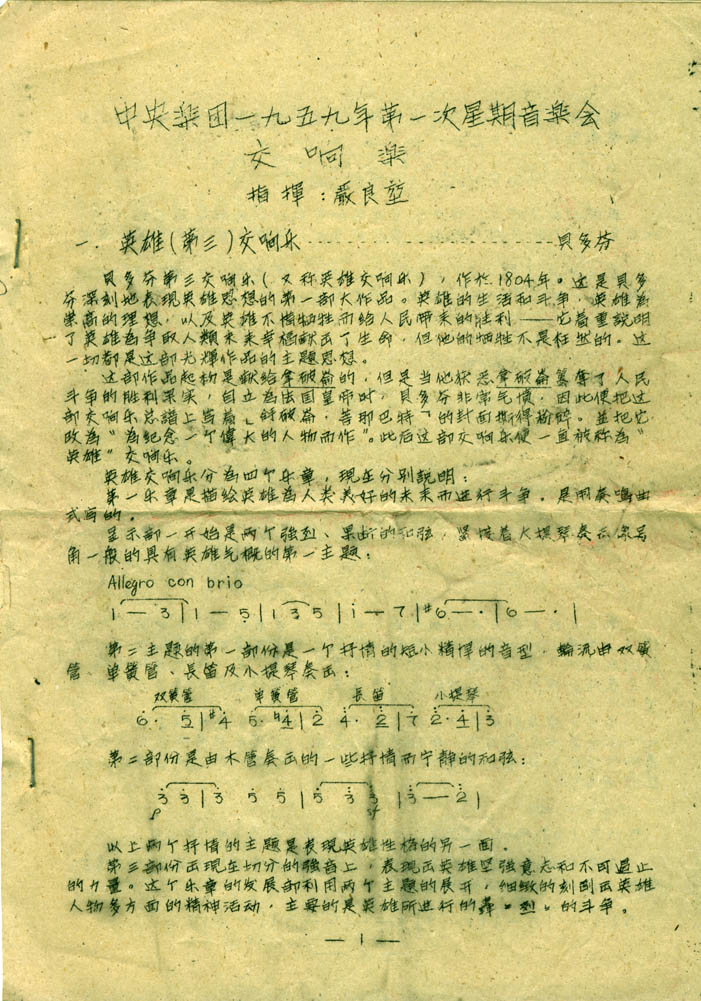 中央楽団一九五九年第一次星期音楽会
交响楽
指揮：嚴良堃
一. 英雄(第三)交响乐 ------ 貝多芬
貝多芬第三交响乐(又称英雄交响乐)，作於1804年。这是貝多
芬深刻地表現英雄思想的第一部大作品。英雄的生活和斗争，英雄為
崇高的理想，以及英雄不惜牺牲而給人民帶來的胜利——它着重説明
了英雄為争取人類未来幸福献出了生命，但他的牺牲不是枉然的。这
一切都是这部光輝作品的主題思想。
这部作品起初是献給拿破崙的，但是当他获悉拿破崙簒奪了人民
斗争的胜利果实，自立為法国皇帝时，貝多芬非常气憤，因此便把这
部交响乐总譜上写着 拿破崙· 的封面撕得粉碎。並把它
改為“為紀念一个偉大的人物而作”。此后这部交响乐便一直被称為“
英雄”交响乐。
英雄交响乐分為四个乐章，現在分别説明：
第一乐章是描绘英雄為人类美好的未来而進行斗争，是用奏鳴曲
式写的。
呈示部一开始是两个強烈、果断的和弦，紧接着大提琴奏出像号
角一般的具有英雄气概的第一主題：
Allegro con brio
1 — 3 | 1 — 5 | 1 3 5 | i — 7 | #6 — · | 6 — · |
第二主題的第一部份是一个抒情的短小精悍的音型，輪流由双簧
管、单簧管、長笛及小提琴奏出：
双簧管 单簧管 長笛 小提琴
6· 5 | #4 5· 4 | 2 4· 2 | 7 2· 4 | 3
第二部份是由木管奏出的一些抒情而宁静的和弦：
3 3 | 3 5 5 | 5 3 3 | 3 — 2 |
p sf
以上两个抒情的主題是表現英雄性格的另一面。
第三部份出現在切分的強音上，表現出英雄坚強意志和不可遏止
的力量。这个乐章的发展部利用两个主題的展开，細緻的刻劃出英雄
人物多方面的精神活动，主要的是英雄所進行的轟烈的斗争。
— 1 —